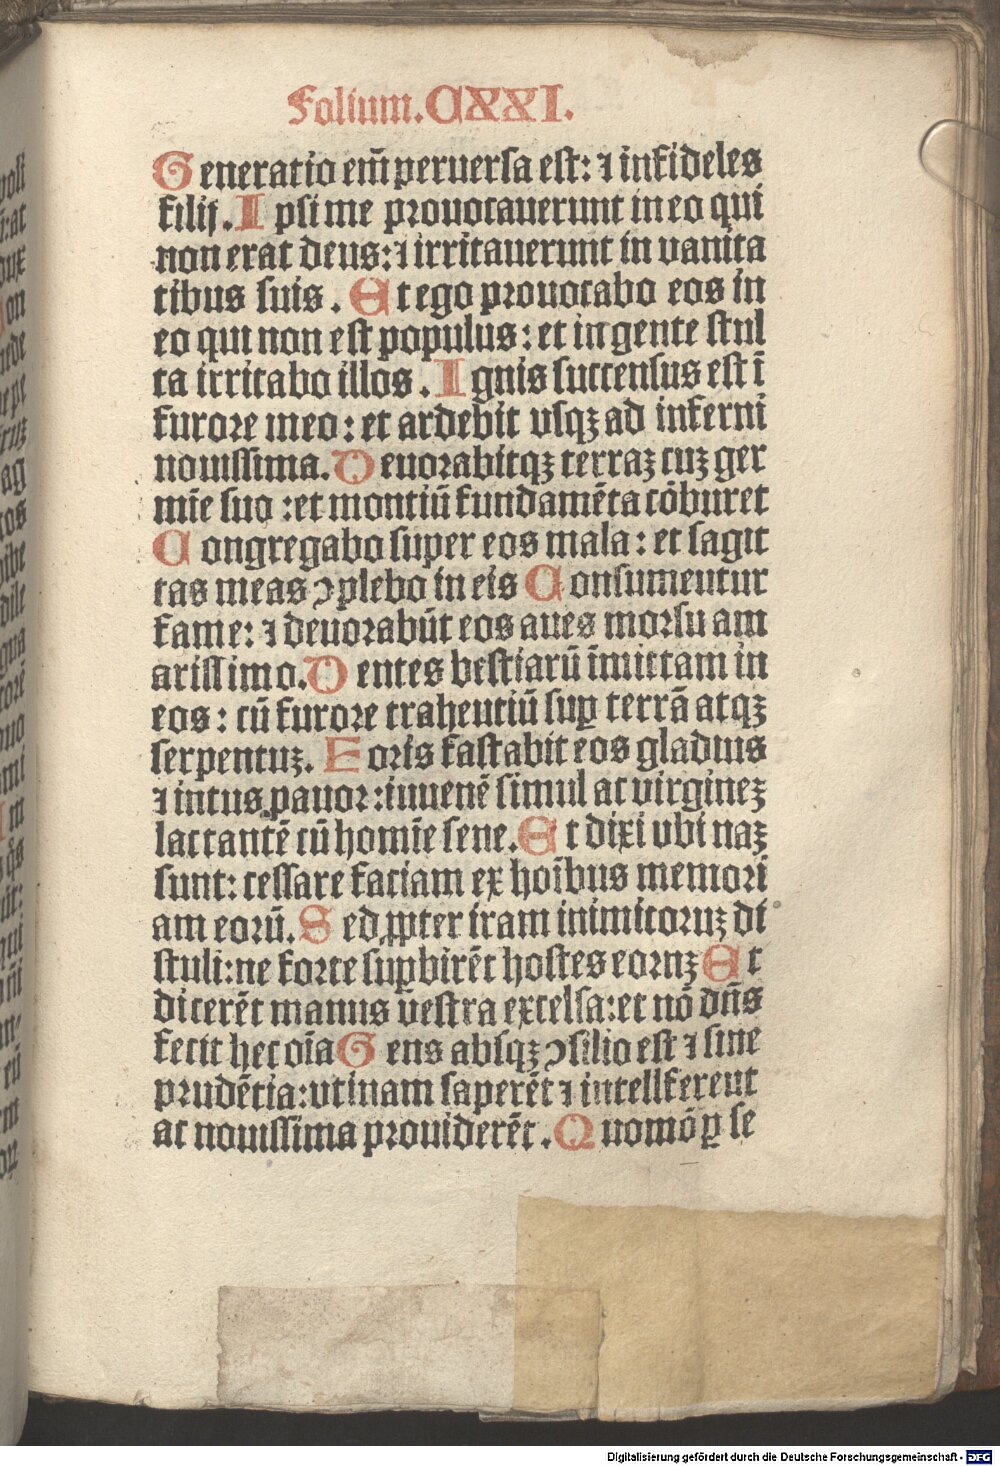 Folium. CXXI.
Generatio em̄ peruersa est: ⁊ infideles
filij. Ipsi me prouocauerunt in eo qui
non erat deus: ⁊ irritauerunt in vanita
tibus suis. Et ego prouocabo eos in
eo qui non est populus: et in gente stul
ta irritabo illos. Ignis succensus est ī
furore meo: et ardebit vsqꝫ ad inferni
nouissima. Deuorabitqꝫ terraꝫ cuꝫ ger
mīe suo: et montiū fundamēta cōburet
Congregabo super eos mala: et sagit
tas meas ↄplebo in eis Consumentur
fame: ⁊ deuorabūt eos aues morsu am
arissimo. Dentes bestiarū īmittam in
eos: cū furore trahentiū suꝑ terrā atqꝫ
serpentuꝫ. Foris fastabit eos gladius
⁊ intus pauor: iuuenē simul ac virgineꝫ
lactantē cū homīe sene. Et dixi vbi naꝫ
sunt: cessare faciam ex hoībus memori
am eorū. Sed ꝓpter iram inimicoruꝫ di
stuli: ne forte suꝑbirēt hostes eornꝫ Et
dicerēt manus vestra excelsa: et nō dn̄s
fecit hec oīa Gens absqꝫ ↄsilio est ⁊ sine
prudētia: vtinam saperēt ⁊ intellferent
ac nouissima prouiderēt. Quomō ꝑse
Digitalisierung gefördert durch die Deutsche Forschungsgemeinschaft - DFG